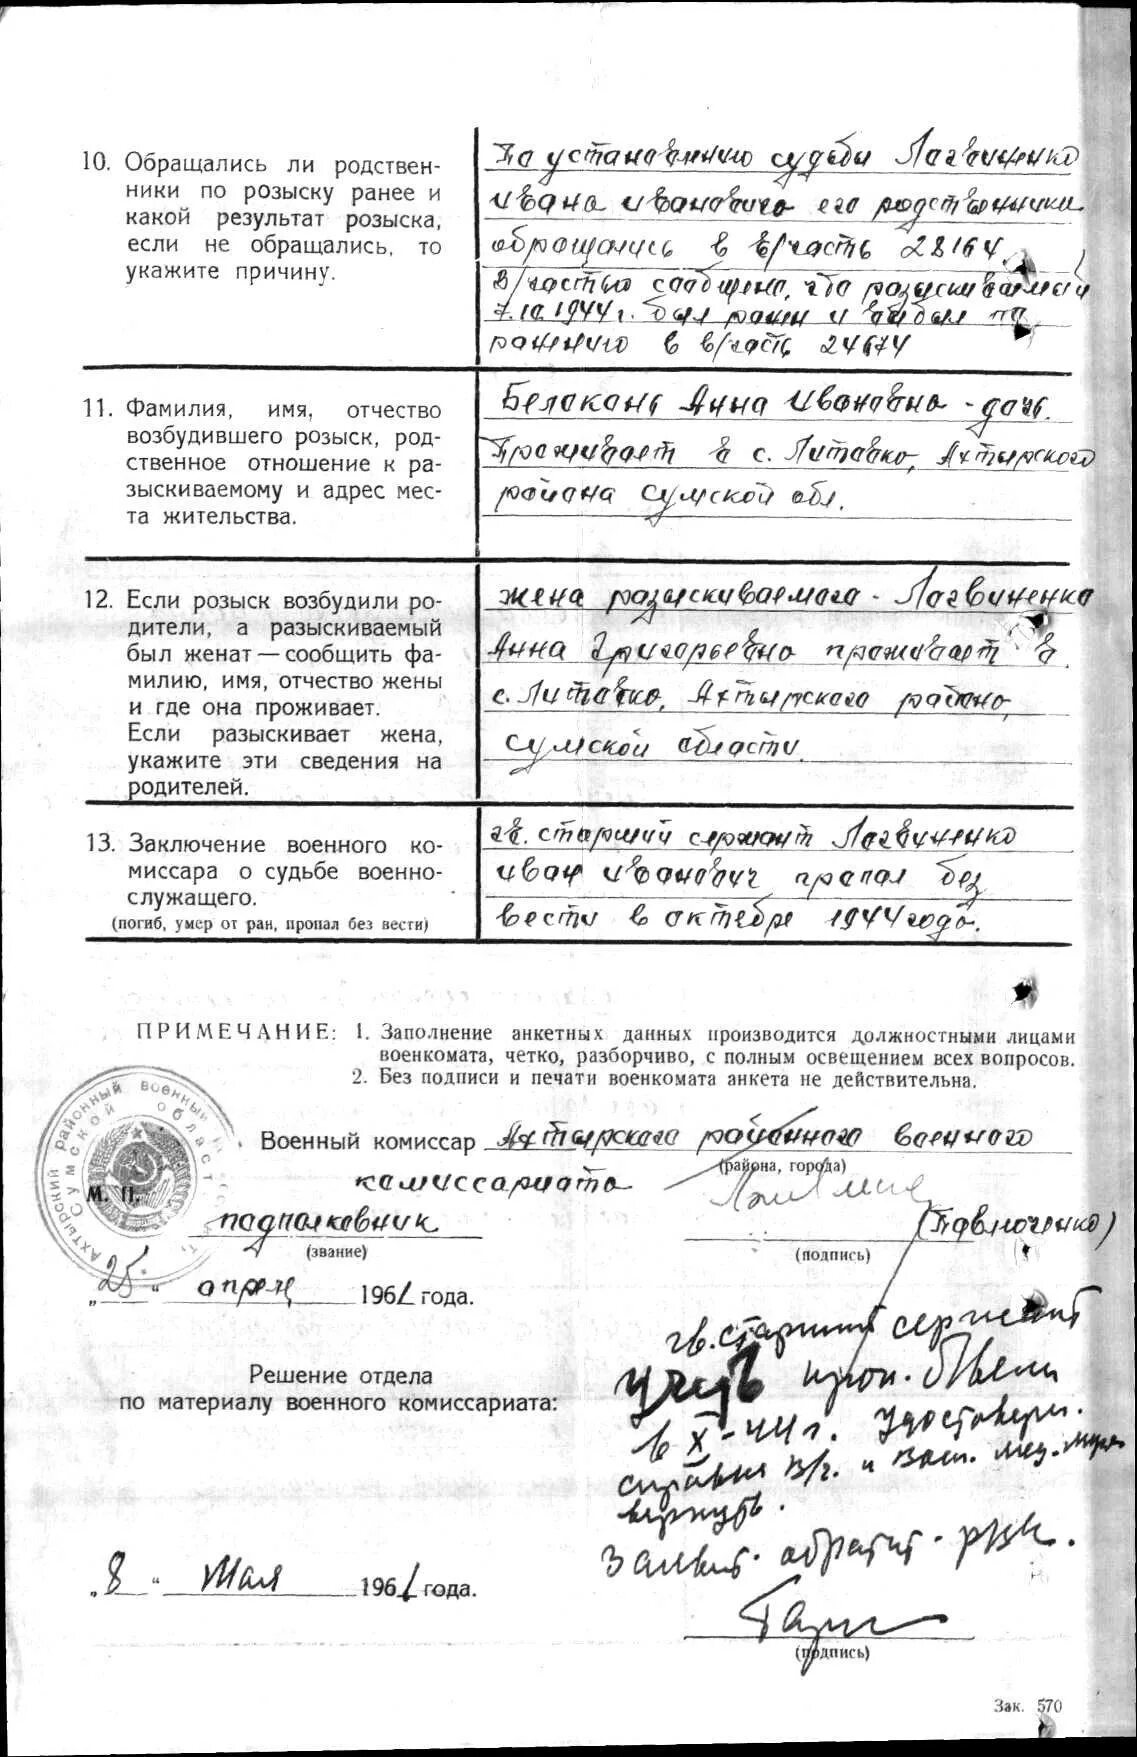 10. Обращались ли родствен-
ники по розыску ранее и
какой результат розыска,
если не обращались, то
укажите причину.
По установлению судьбы Логвиненко
Ивана Ивановича его родственники
обращались в в/часть 28164.
В/частью сообщено, что разыскиваемый
7.10.1944 г. был ранен и выбыл по
ранению в в/часть 24674
11. Фамилия, имя, отчество
возбудившего розыск, род-
ственное отношение к ра-
зыскиваемому и адрес мес-
та жительства.
Белоконь Анна Ивановна - дочь.
Проживает в с. Литовко, Ахтырского
района Сумской обл.
12. Если розыск возбудили ро-
дители, а разыскиваемый
был женат — сообщить фа-
милию, имя, отчество жены
и где она проживает.
Если разыскивает жена,
укажите эти сведения на
родителей.
жена разыскиваемого - Логвиненко
Анна Григорьевна проживает в
с. Литовко, Ахтырского района,
Сумской области.
13. Заключение военного ко-
миссара о судьбе военно-
служащего.
(погиб, умер от ран, пропал без вести)
гв. старший сержант Логвиненко
Иван Иванович пропал без
вести в октябре 1944 года.
ПРИМЕЧАНИЕ: 1. Заполнение анкетных данных производится должностными лицами
военкомата, четко, разборчиво, с полным освещением всех вопросов.
2. Без подписи и печати военкомата анкета не действительна.
Ахтырский районный военный
Сумской област
М. П.
Военный комиссар Ахтырского районного военного
(района, города)
комиссариата
подполковник
(Павлюченко)
(звание)
(подпись)
„25“ апреля 1961 года.
гв. старший сержант
Решение отдела
по материалу военного комиссариата:
учесть проп. б/вести
в X-44 г. Удостоверен.
справки В/ч. и Воен. мед. музея
вернуть.
Заявит. обратит. РВК.
„8“ Мая 1961 года.
(подпись)
Зак. 570